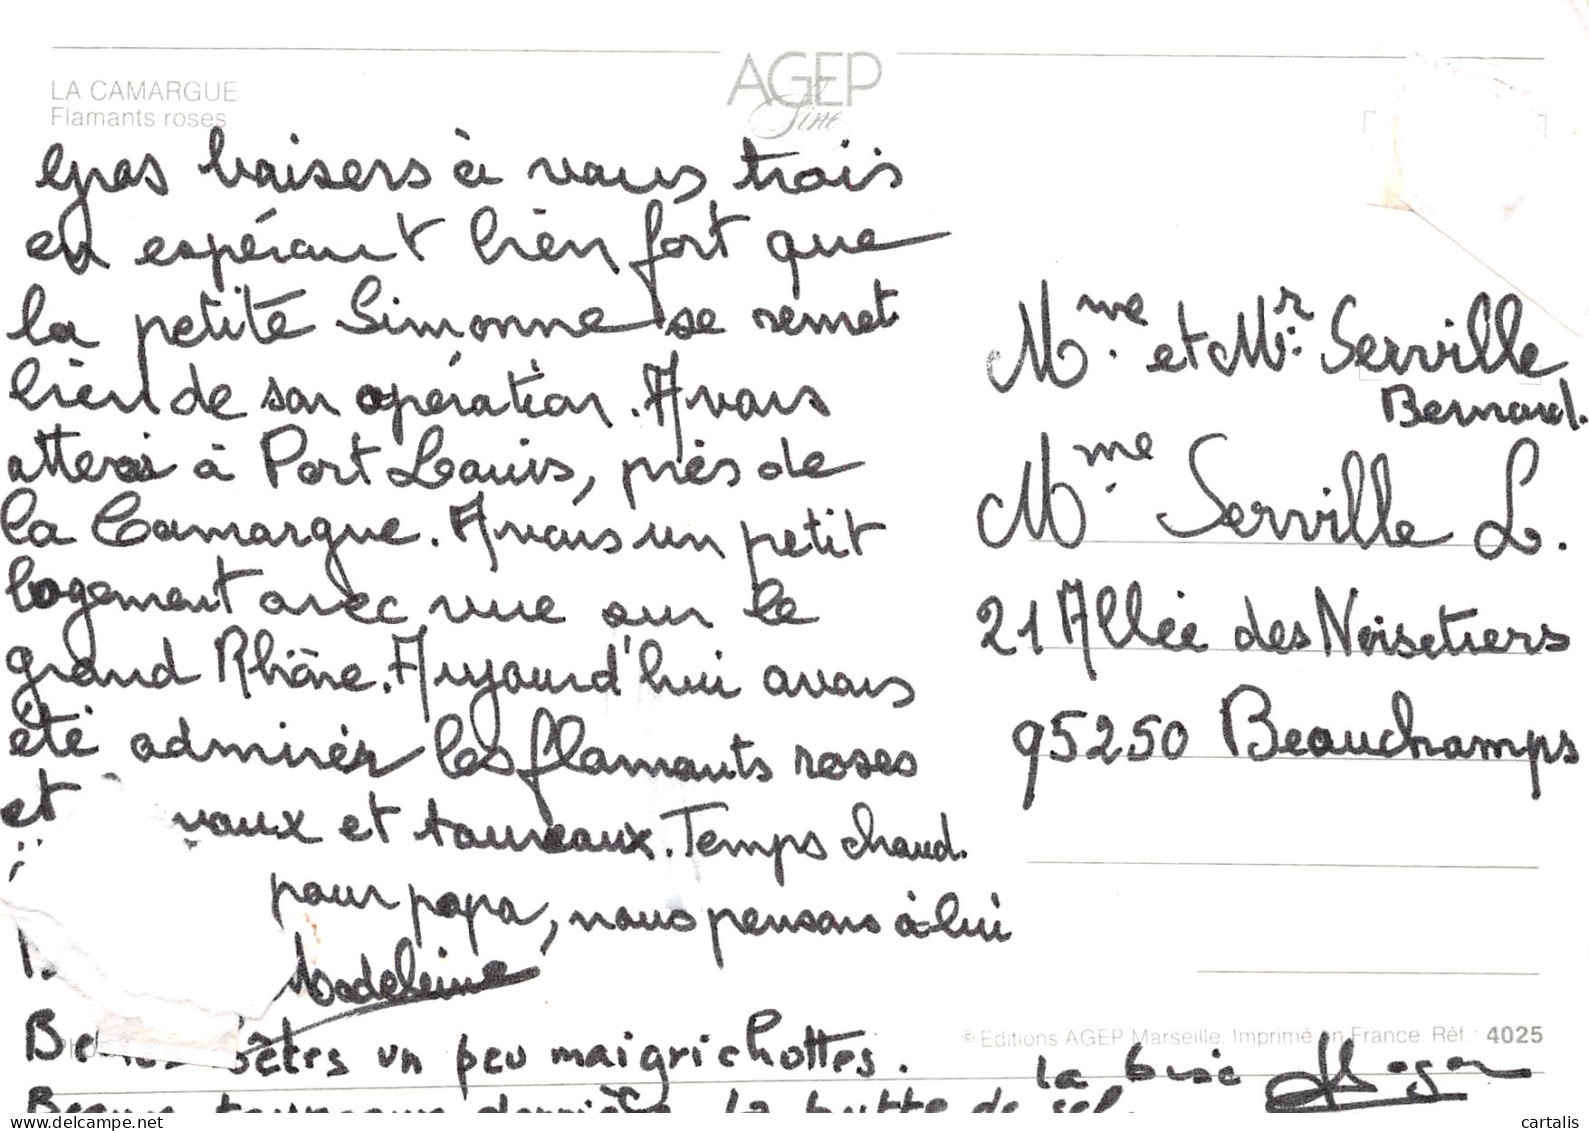 LA CAMARGUE
Flamants roses
AGEP
Line
Gros baisers à vous trois
en espérant bien fort que
la petite Simonne se remet
bien de son opération. Avons
atteri à Port Louis, près de
la Camargue. Avons un petit
logement avec vue sur le
grand Rhône. Aujourd'hui avons
été admirér les flamants roses
et vaux et taureaux. Temps chaud.
pour papa, nous pensons à lui
Madeleine
bêtes un peu maigrichottes.
Beaux taureaux derrière la butte de sel.
La bise Roger
Mme. et Mr. Serville
Bernard.
Mme. Serville L.
21 Allée des Noisetiers
95250 Beauchamps
© Editions AGEP Marseille. Imprimé en France. Réf.: 4025
cartalis